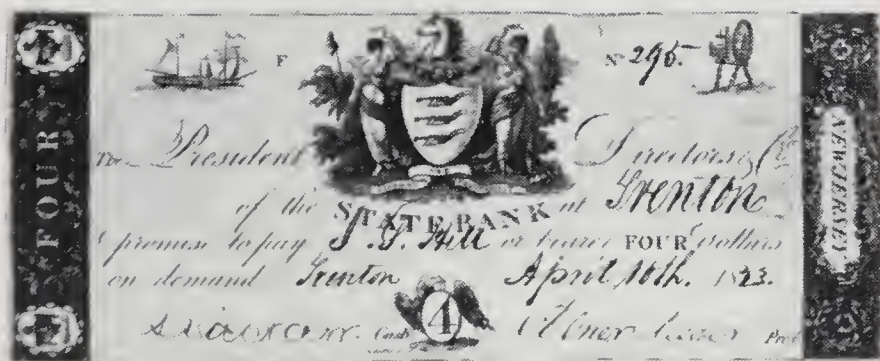 FOUR
F
No 295.
The President Directors & Co
of the STATE BANK at Trenton
promise to pay Hill or bearer FOUR dollars
on demand Trenton April 16th. 1823.
Cashr. 4 Prest
NEW JERSEY